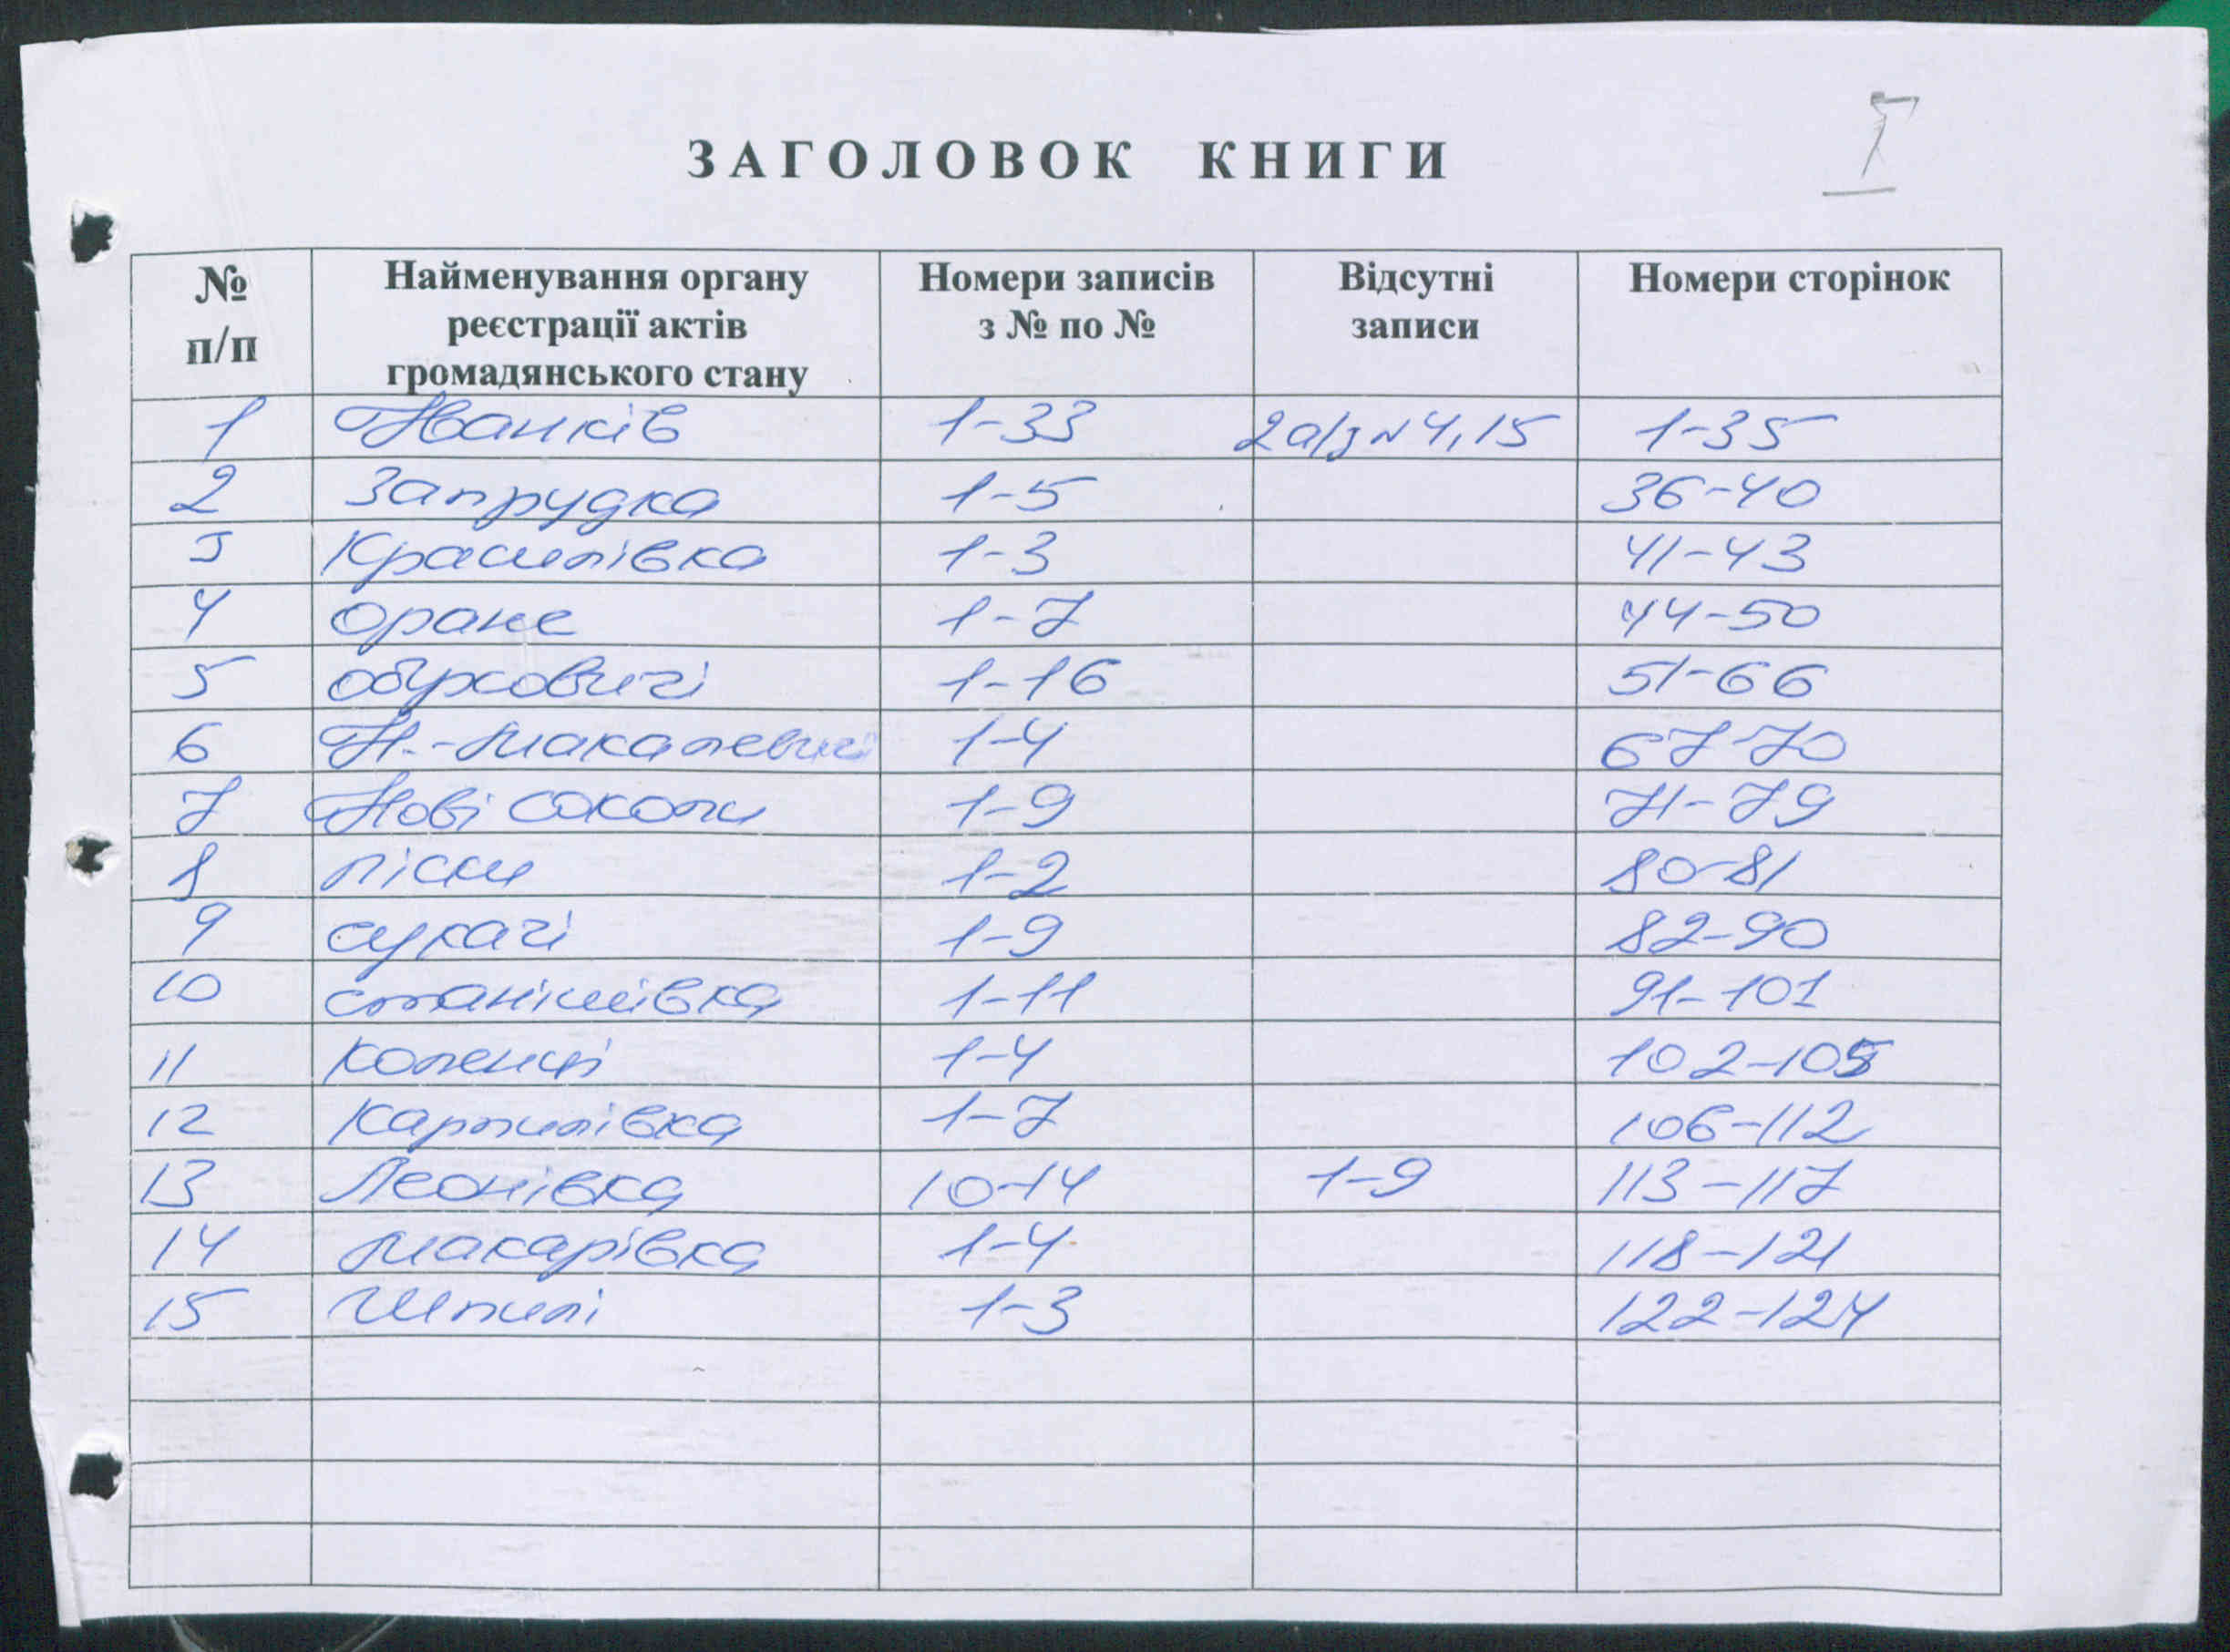 ЗАГОЛОВОК КНИГИ
№ п/п Найменування органу реєстрації актів громадянського стану Номери записів з № по № Відсутні записи Номери сторінок
1 Іванків 1-33 2а/з №4,15 1-35
2 Запрудка 1-5 36-40
3 Красилівка 1-3 41-43
4 Оране 1-7 44-50
5 Обуховичі 1-16 51-66
6 Н.-Макалевичі 1-4 67-70
7 Нові Соколи 1-9 71-79
8 Піски 1-2 80-81
9 Сукачі 1-9 82-90
10 Станішівка 1-11 91-101
11 Коленці 1-4 102-105
12 Карпилівка 1-7 106-112
13 Леонівка 10-14 1-9 113-117
14 Макарівка 1-4 118-121
15 Шпилі 1-3 122-124